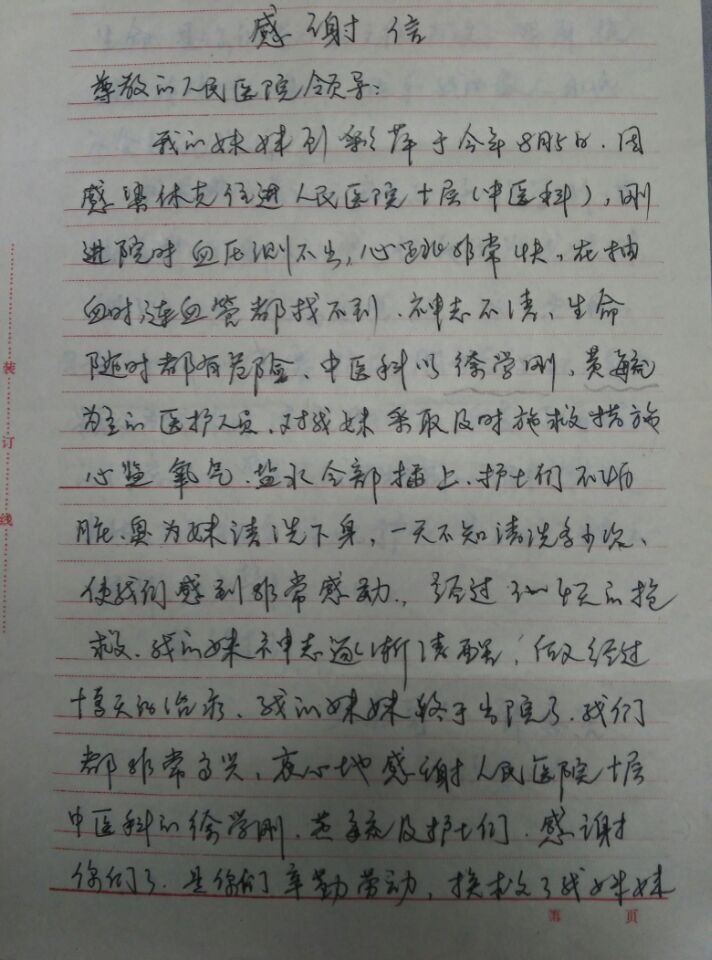 感谢信
尊敬的人民医院领导:
我的妹妹刘彩萍于今年8月5日.因
感染休克住进人民医院十层(中医科),刚
进院时血压测不出,心跳非常快,在抽
血时,连血管都找不到.神志不清、生命
随时都有危险、中医科以徐学刚、黄毓
为主的医护人员、对我妹采取及时施救措施
心监氧气、盐水全部插上、护士们不怕
脏、臭为妹清洗下身,一天不知清洗多少次、
使我们感到非常感动.,经过3到4天的抢
救、我的妹神志逐渐清醒,但又经过
十多天的治疗、我的妹妹终于出院了.我们
都非常高兴、衷心地感谢人民医院十层
中医科的徐学刚、黄毓及护士们.感谢
你们了.是你们辛勤劳动,挽救了我妹妹
装
订
线
第 页